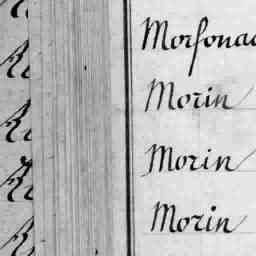 Morfonac
Morin
Morin
Morin